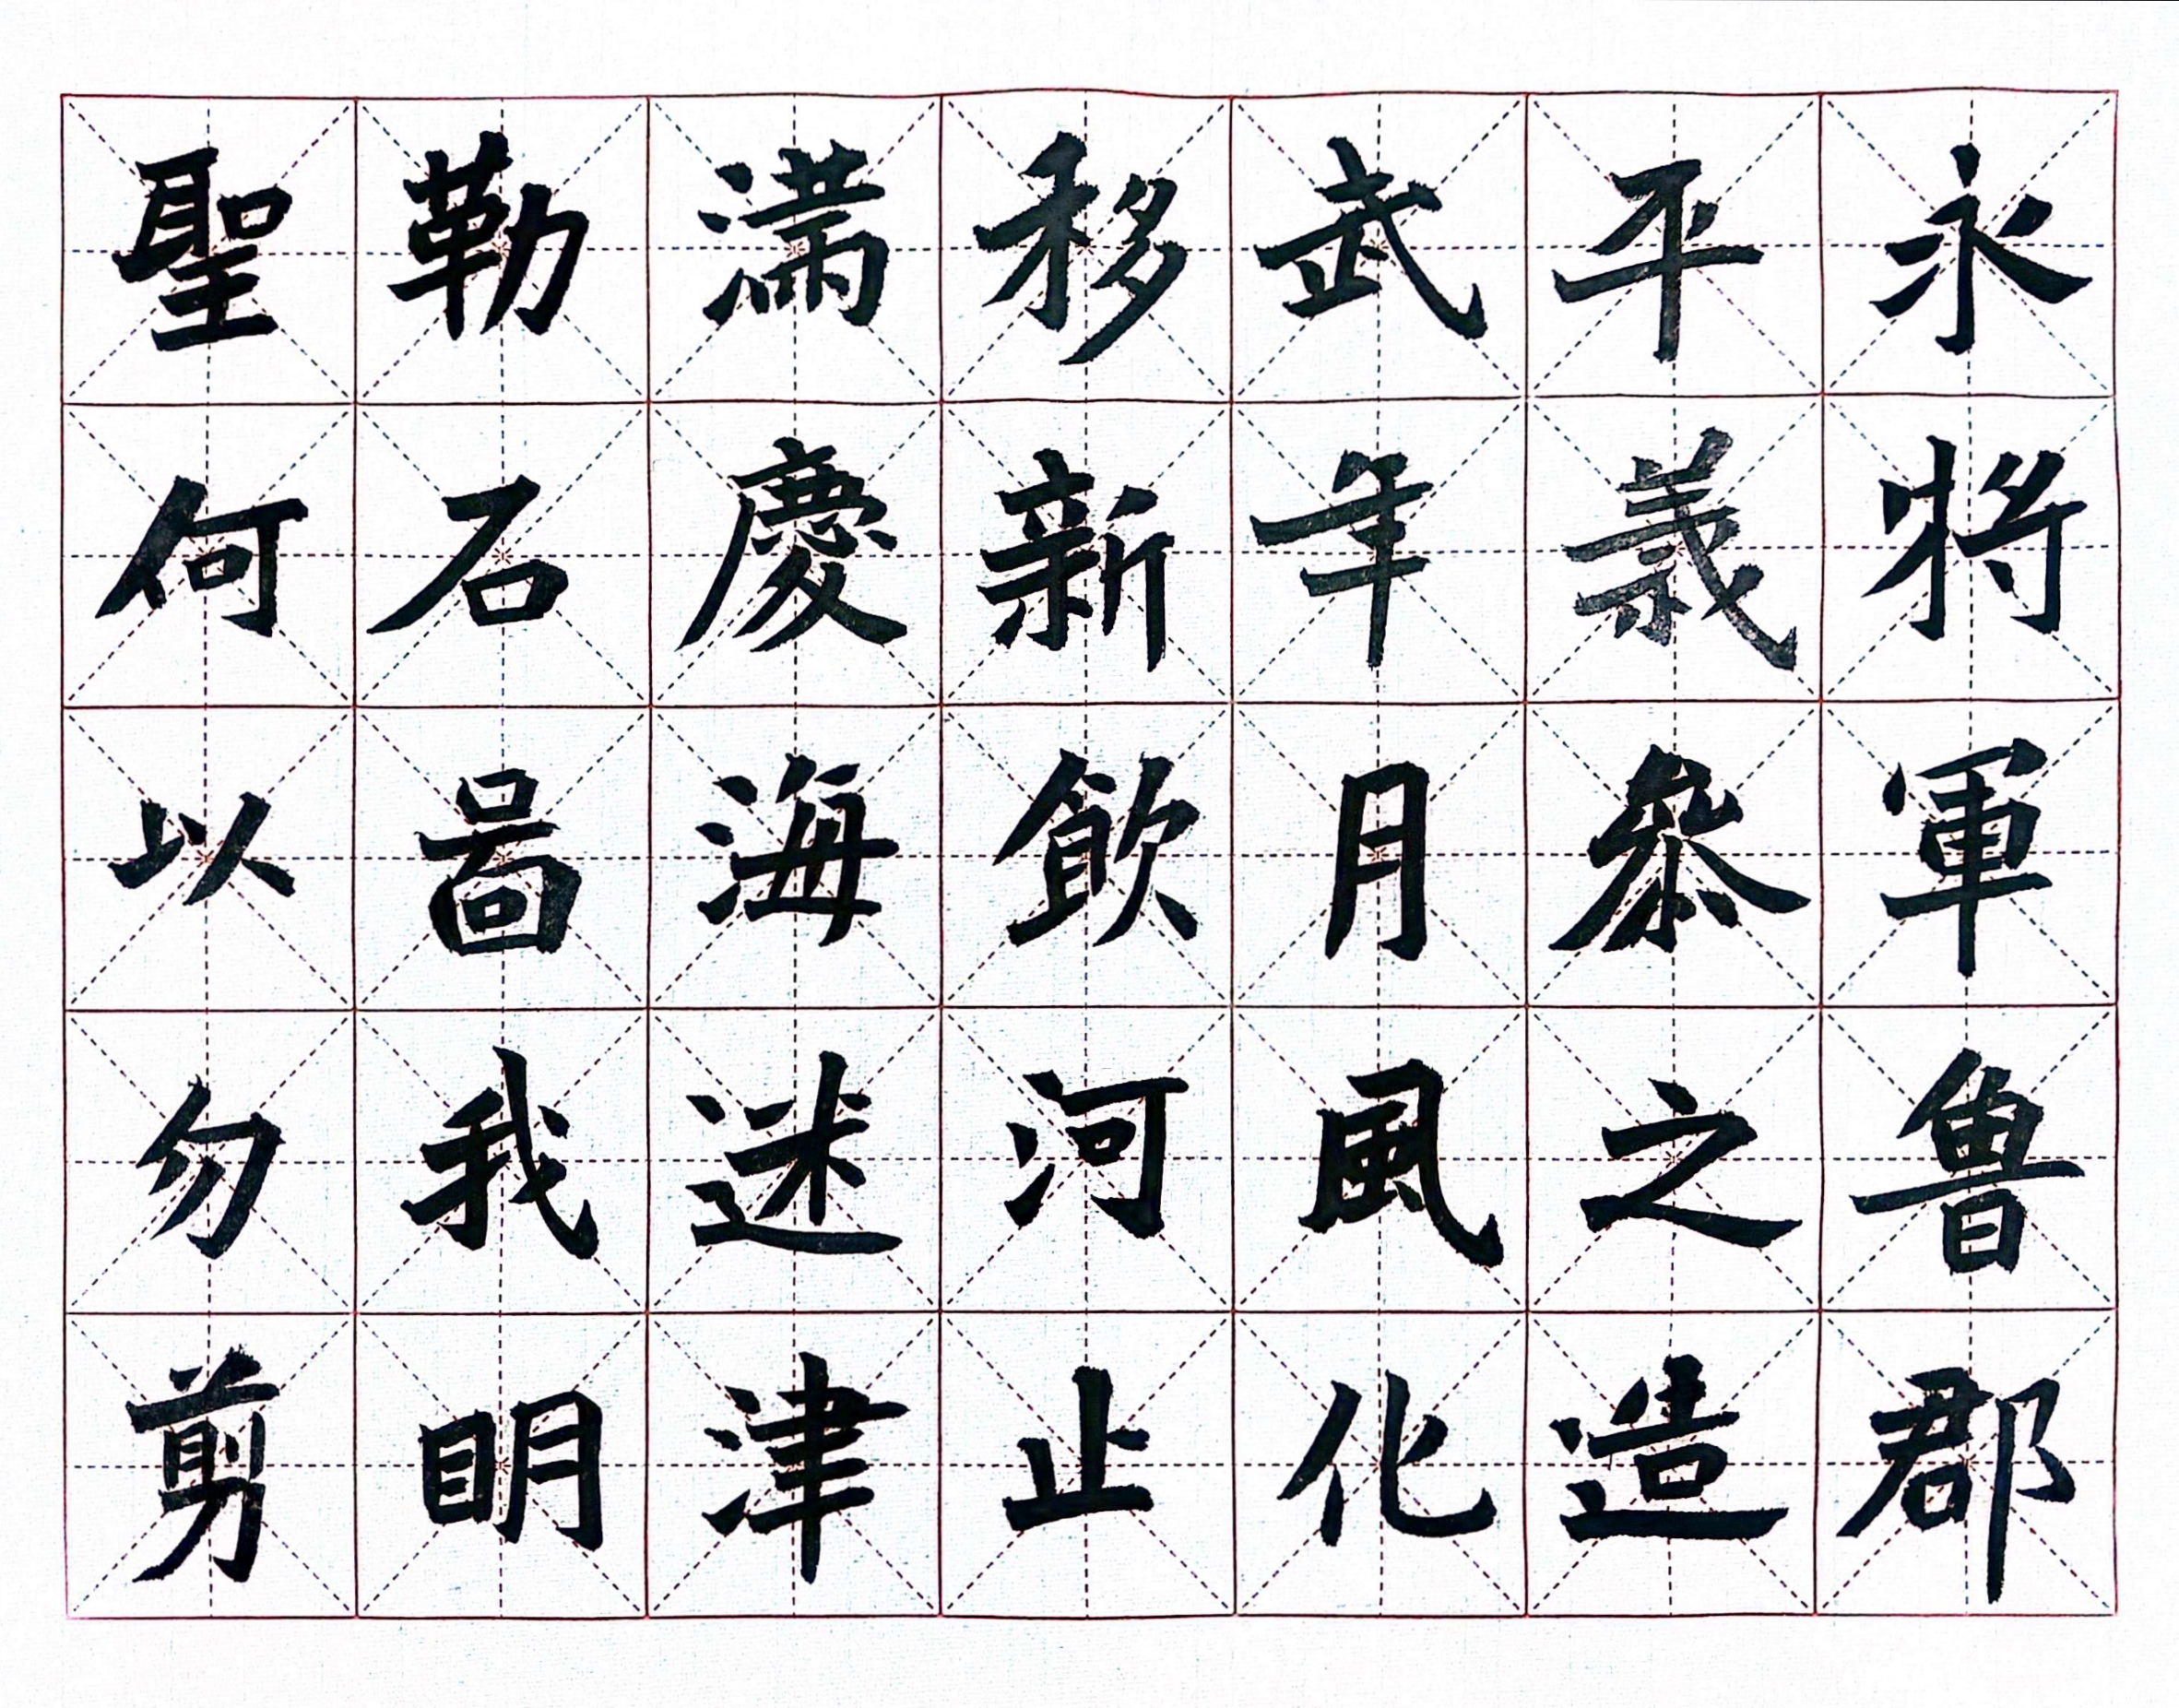 永將軍魯郡
平義叅之造
武年月風化
移新飲河止
満慶海迷津
勒石啚我明
聖何以勿剪